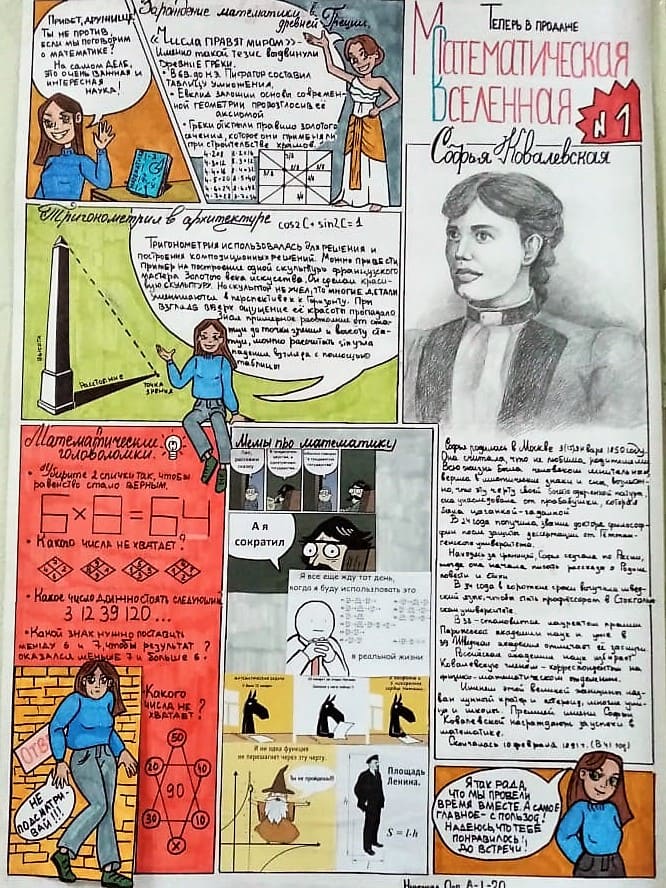 Привет, дружище!
Ты не против,
если мы поговорим
о математике?
На самом деле,
это очень важная и
интересная
наука!
Зарождение математики в
древней Греции.
«Числа правят миром»-
именно такой тезис выдвинули
древние греки.
• В 6 в. до н.э. Пифагор составил
таблицу умножения.
• Евклид заложил основы современ-
ной геометрии
аксиомой
• Греки открыли правило золотого
сечения, которое они применяли
при строительстве храмов.
Теперь в продаже
Математическая
Вселенная
N 1
Софья Ковалевская
Тригонометрия в архитектуре
cos2C+ sin2C= 1
Тригонометрия использовалась для решения и
построения композиционных решений. Можно привести
пример на построение одной скульптуры французского
мастера Золотого века искусства. Он сделал краси-
вую скульптуру. Но скульптор не учел, что многие детали
уменьшаются в перспективе к горизонту. При
взгляде вверх ощущение её красоты пропадало
Зная примерное расстояние от ста-
туи до точки зрения и высоту ста-
туи, можно рассчитать sin угла
падения взгляда с помощью
таблицы
высота
Расстояние
точка
зрения
Математические
головоломки.
• Уберите 2 спички так, чтобы
равенство стало верным.
6×8=64
• Какого числа не хватает?
• Какое число должно стоять следующим
3 12 39 120 ...
• Какой знак нужно поставить
между 6 и 7, чтобы результат ?
оказался меньше 7 и больше 6.
• Какого
числа не
хватает?
50
20
40
90
30
10
x
Отв
Не
подсматри
вай!!!
Мемы про математику
А я
сократил
Я все еще жду тот день,
когда я буду использовать это
в реальной жизни
И ни одна функция
не перешагнет через эту черту.
Ты не пройдешь!!!
Площадь
Ленина.
h
S = l·h
l
Софья родилась в Москве 3(15) января 1850 году.
Она считала, что не любима родителями.
Всю жизнь была человеком мнительным,
верила в мистические знаки и сны, возмож-
но, что эту черту своей
она унаследовала от прабабушки, которая
была цыганкой-гадалкой
В 24 года получила звание доктора философ-
фии после защиты диссертации от Геттин-
генского университета.
Находясь за границей, Софья скучала по России,
тогда она начала писать рассказы о Родине
повести и
В 34 года в короткие сроки выучила швед-
ский язык, чтобы стать профессором в Стокголь-
ском университете.
В 38 - становится лауреатом премии
Парижской академии наук и уже в
39 Шведская академия отмечает её заслуги
Российская академия наук избирает
Ковалевскую членом - корреспондентом на
физико-математическом отделении.
Именем этой великой женщины наз-
ван лунный кратер и астероид, многие ули-
цы и школы. Премией имени Софьи
Ковалевской награждают за успехи в
математике.
Скончалась 10 февраля 1891 г. (В 41 год)
Я так рада,
что мы провели
время вместе. А самое
главное - с пользой!
Надеюсь, что тебе
понравилось!
До встречи!